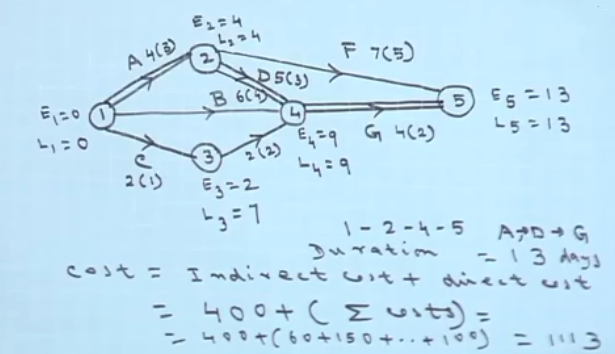 E₂=4
L₂=4
A 4(3)
2
F 7(5)
D 5(3)
B 6(4)
E₁=0
L₁=0
1
4
5
E₅=13
L₅=13
G 4(2)
E₄=9
L₄=9
C
2(1)
3
2(2)
E₃=2
L₃=7
1-2-4-5 A→D→G
Duration = 13 days
cost = Indirect cost + direct cost
= 400+(Σ costs) =
= 400+(60+150+..+100) = 1113